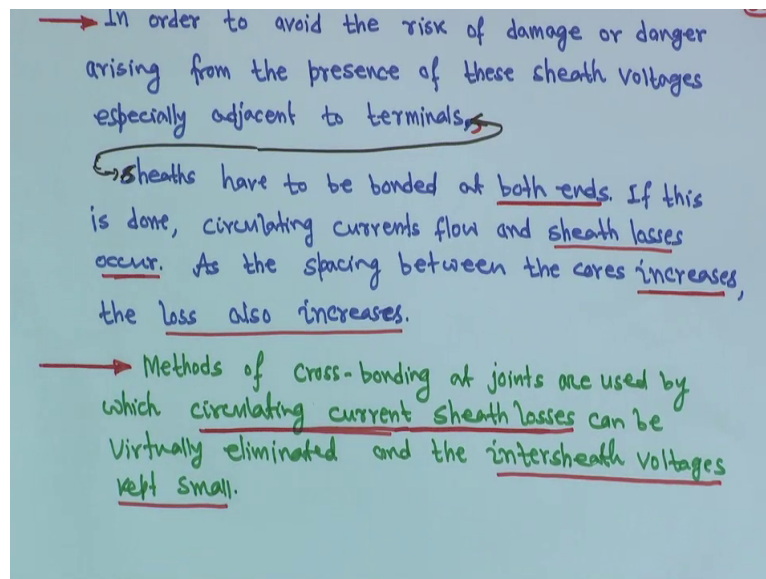 In order to avoid the risk of damage or danger
arising from the presence of these sheath voltages
especially adjacent to terminals,
sheaths have to be bonded at both ends. If this
is done, circulating currents flow and sheath losses
occur. As the spacing between the cores increases,
the loss also increases.
Methods of cross-bonding at joints are used by
which circulating current sheath losses can be
virtually eliminated and the intersheath voltages
kept small.